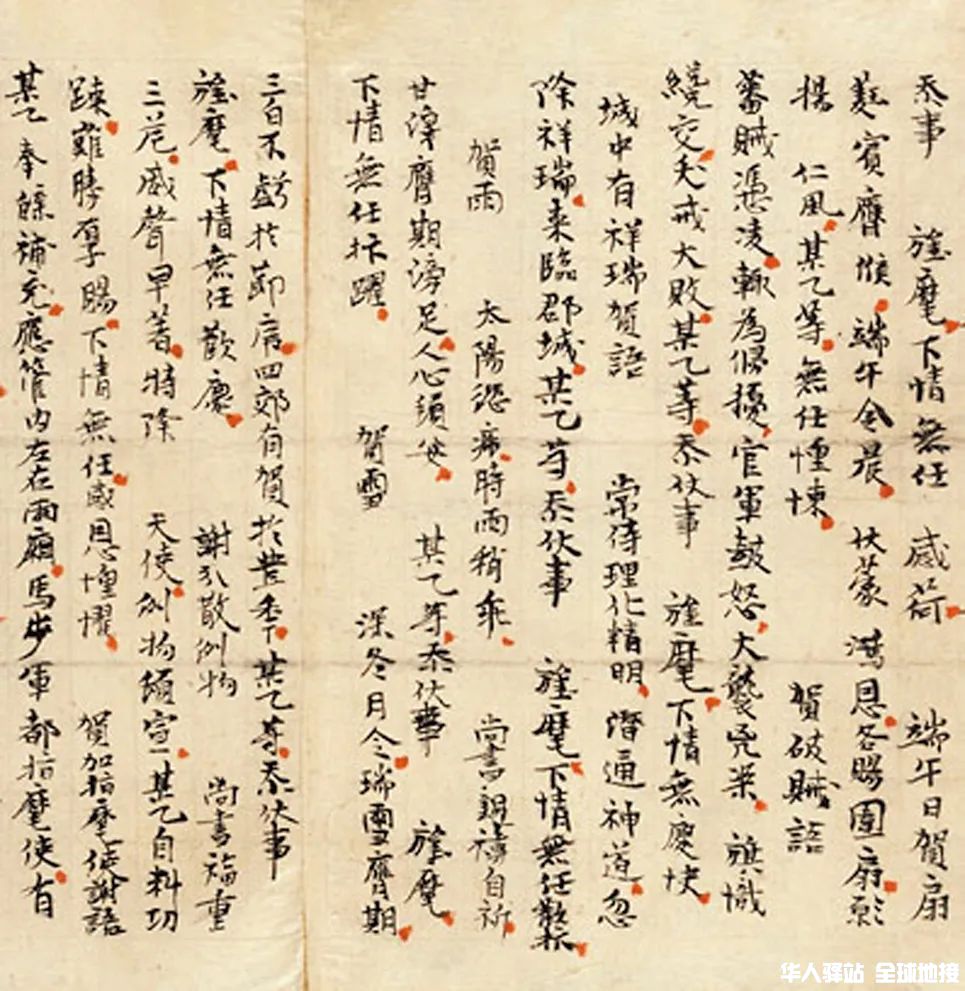 忝事 旌麾下情無任 感荷 端午日賀扇
蕤賓膺候端午令晨 伏蒙 鴻恩各賜團扇彰
揚 仁風某乙等無任惶悚 賀破賊語
蕃賊憑凌輙為侵擾官軍皷怒大襲兇渠 旗幟
纔交犬戎大敗某乙等忝伏事 旌麾下情無慶快
城中有祥瑞賀語 常侍理化精明潛通神道忽
除祥瑞来臨郡城某乙等忝伏事 旌麾下情無任歡抃
賀雨 太陽愆序時雨稍乖 尚書親禱自祈
甘澤膺期滂足人心頓安 某乙等忝伏事 旌麾
下情無任抃躍 賀雪 深冬月令瑞雪膺期
三白不虧於節序四郊有賀於豊季某乙等忝伏事
旌麾下情無任歡慶 謝分散例物 尚書福重
三危威聲早著特降 天使例物頒宣某乙自料功
踈難勝厚賜下情無任感恩惶懼 賀加指麾使謝語
某乙奉牒補充應管內左在兩廂馬步軍都指麾使有
华人驿站 全球地接